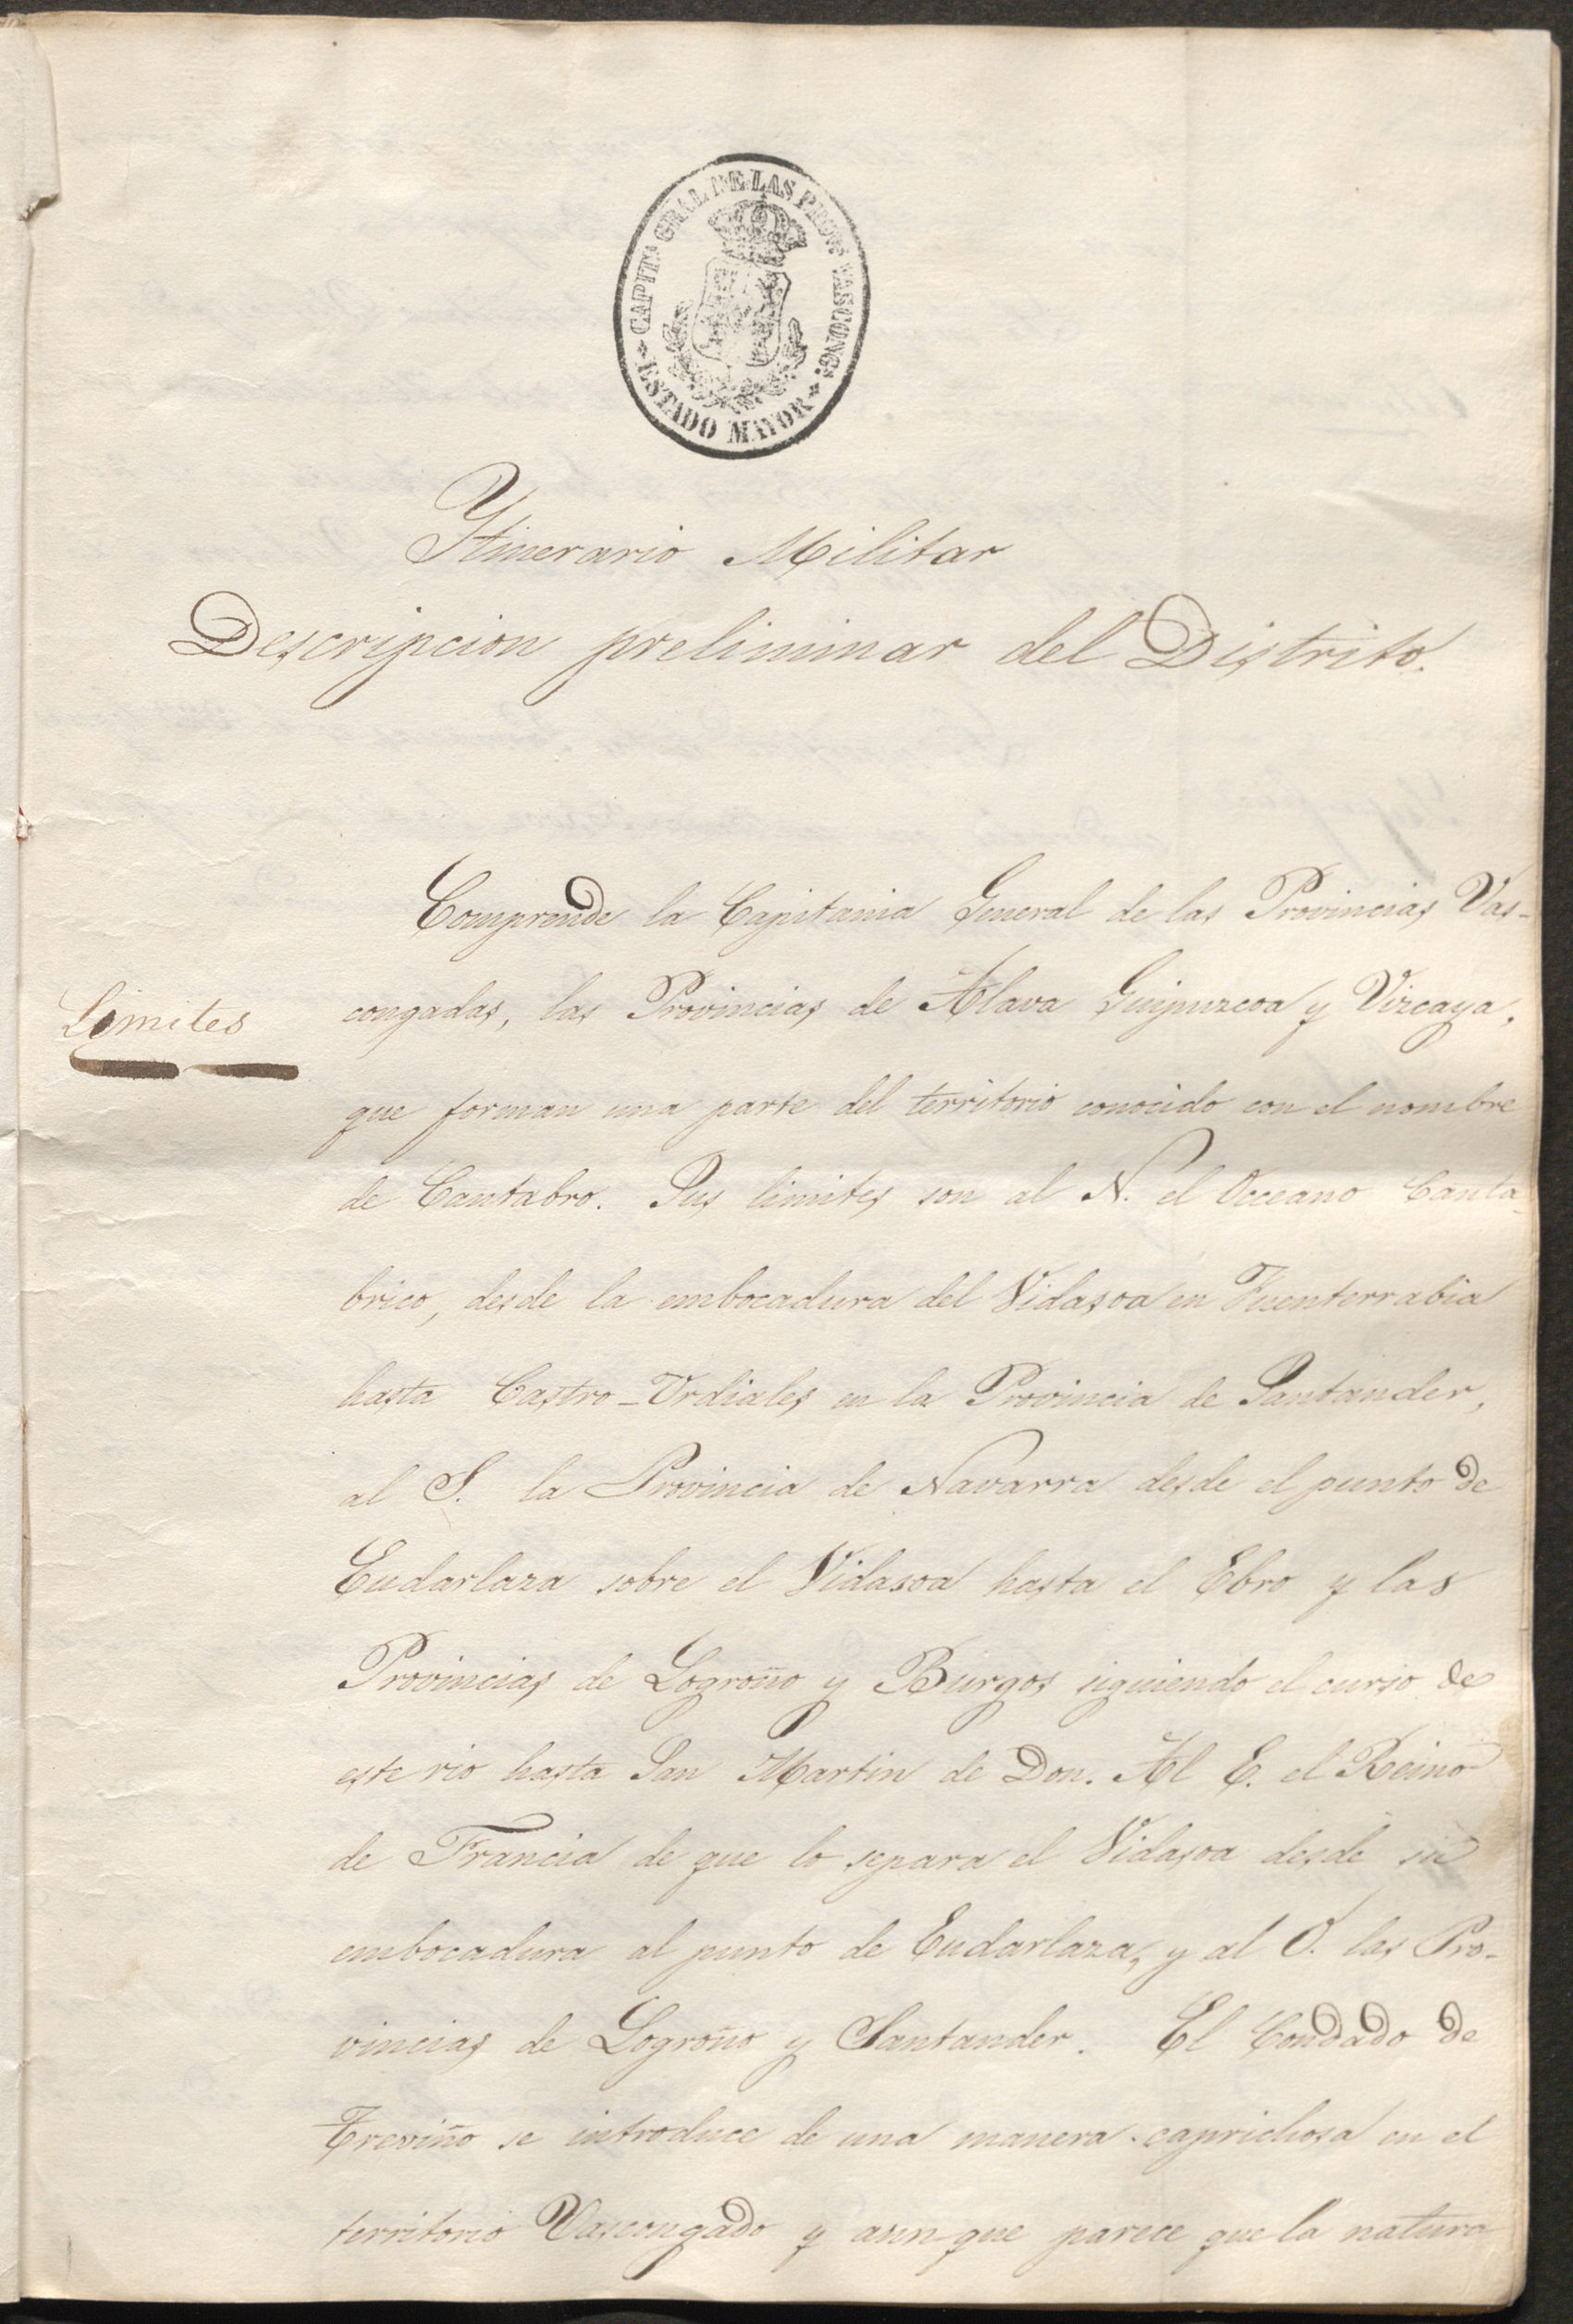 CAPITª GRAL DE LAS PROVS VASCONGS
ESTADO MAYOR
Ytinerario Militar
Descripcion preliminar del Distrito.
Comprende la Capitania General de las Provincias Vas-
Limites
congadas, las Provincias de Alava Guipuzcoa y Vizcaya.
que forman una parte del territorio conocido con el nombre
de Cantabro. Sus limites son al N. el Occeano Canta-
brico, desde la embocadura del Vidasoa en Fuenterrabia
hasta Castro-Urdiales en la Provincia de Santander,
al S. la Provincia de Navarra desde el punto de
Endarlaza sobre el Vidasoa hasta el Ebro y las
Provincias de Logroño y Burgos siguiendo el curso de
este rio hasta San Martin de Don. Al E. el Reino
de Francia de que lo separa el Vidasoa desde su
embocadura al punto de Endarlaza, y al O. las Pro-
vincias de Logroño y Santander. El Condado de
Treviño se introduce de una manera caprichosa en el
territorio Vascongado y aunque parece que la natura